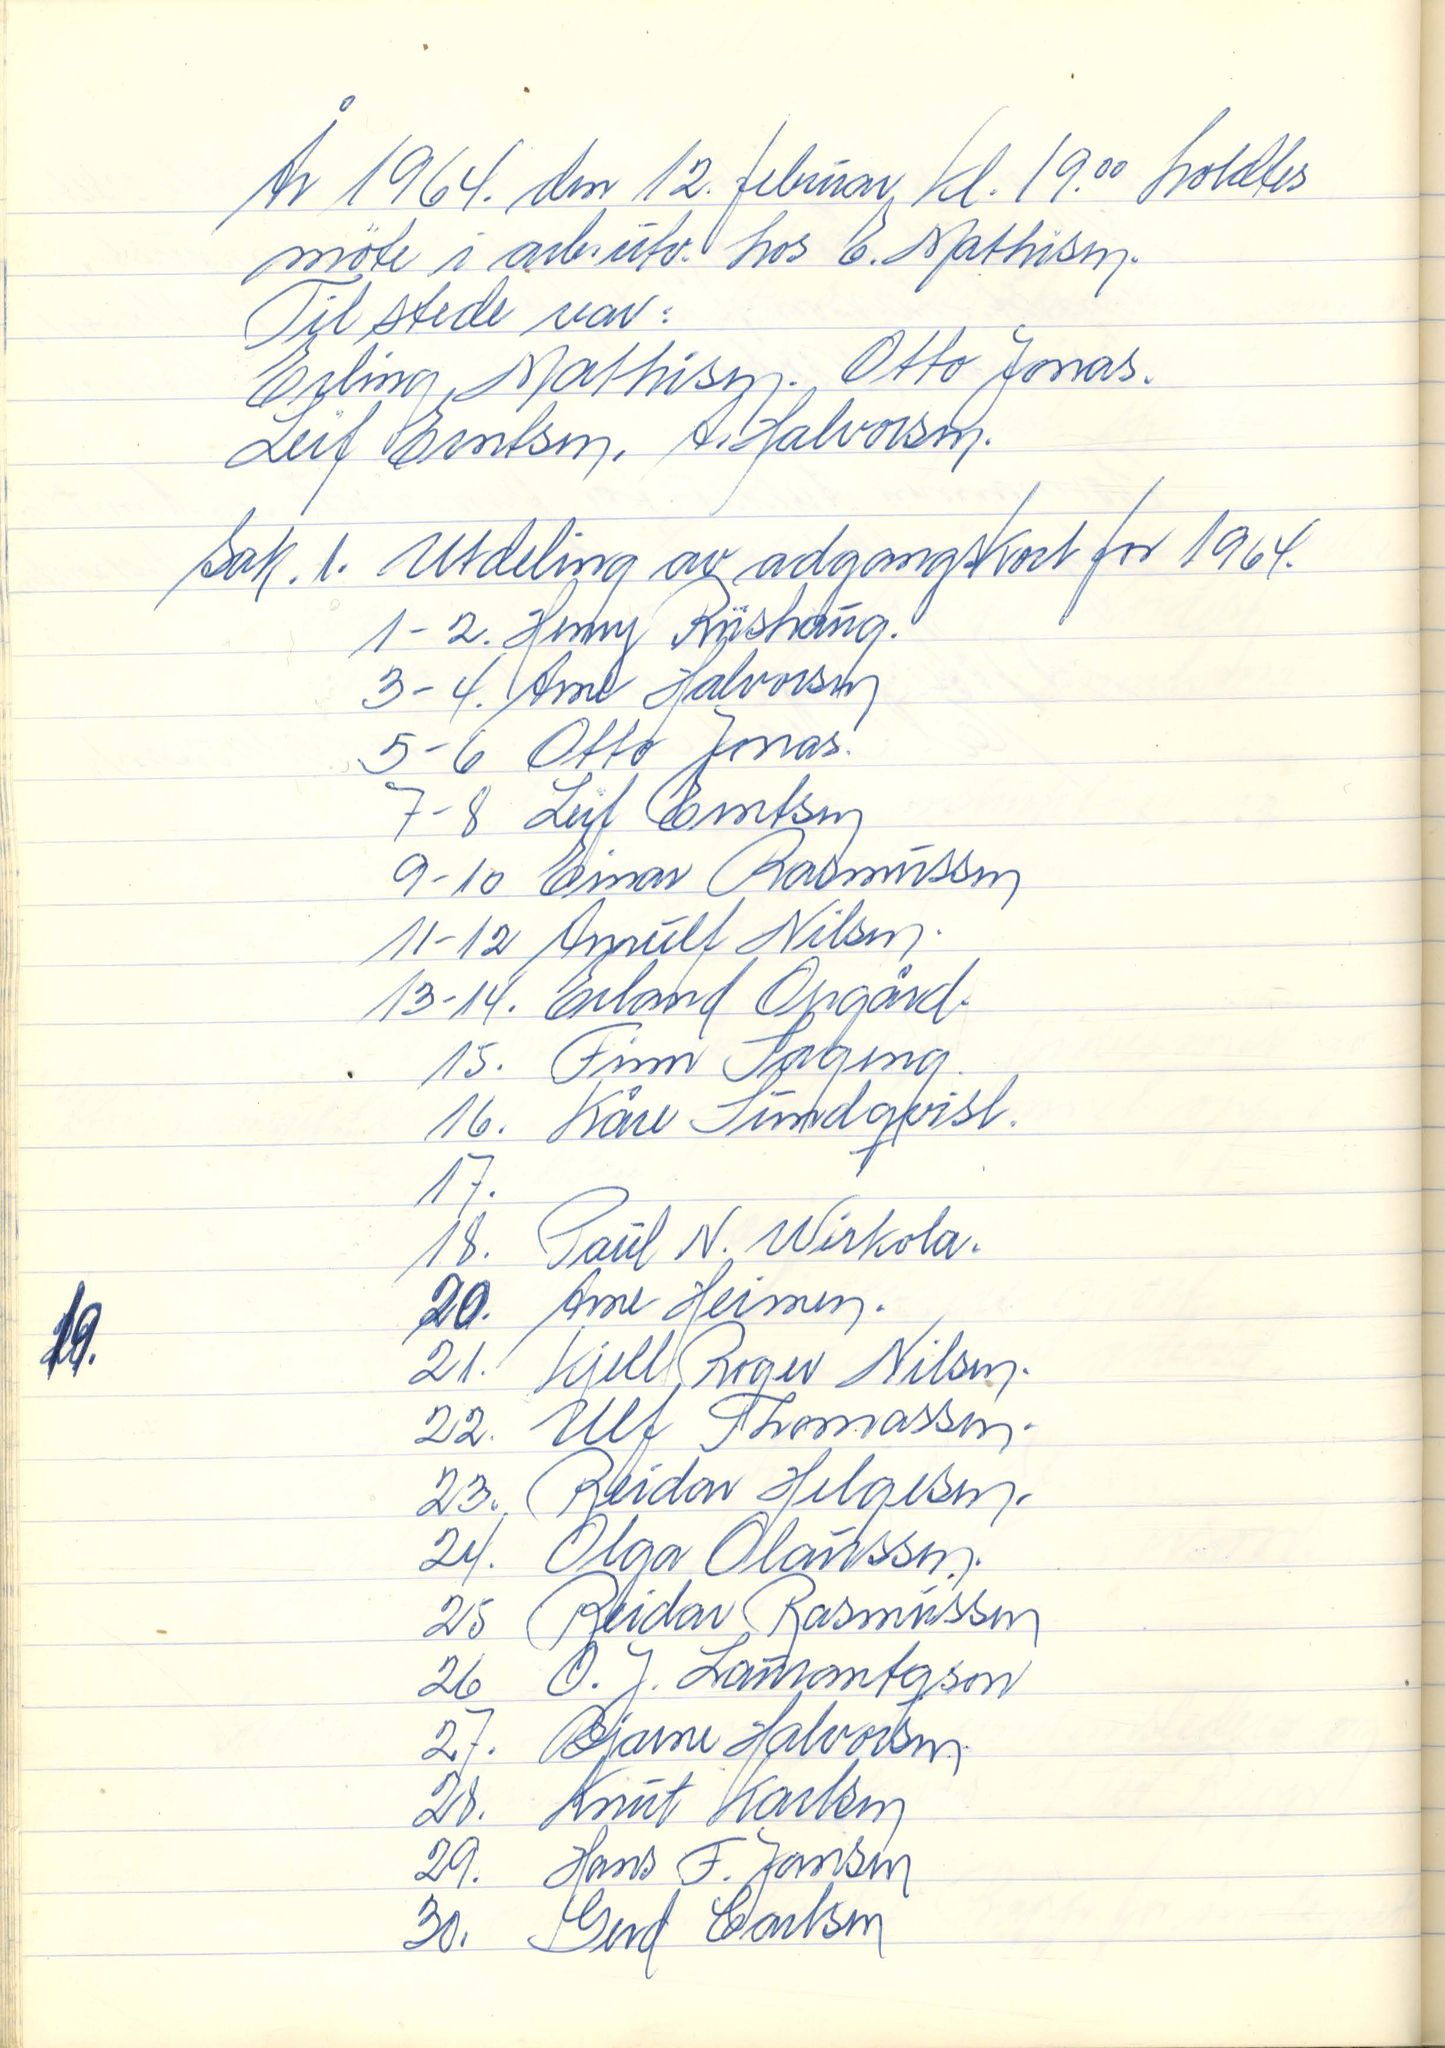 År 1964. den 12. februar, kl. 19.00 holdtes
möte i arb.utv. hos E. Mathisen.
Til stede var:
Erling Mathisen. Otto Jonas.
Leif Erntsen. A. Halvorsen.
Sak. 1. Utdeling av adgangskort for 1964.
1-2. Henny Riishaug.
3-4. Arne Halvorsen
5-6 Otto Jonas.
7-8 Leif Erntsen
9-10 Einar Rasmussen
11-12 Arnulf Nilsen.
13-14. Erland Opgård.
15. Finn Sageng.
16. Kåre Sundqvist.
17.
18. Paul N. Wirkola.
20. Arne Heimen.
19.
21. Kjell Roger Nilsen.
22. Ulf Thomassen.
23. Reidar Helgesen.
24. Olga Olaussen.
25 Reidar Rasmussen
26 O. J. Laurantzson
27. Bjarne Halvorsen
28. Knut Karlsen
29. Hans F. Jansen
30. Gerd Carlsen